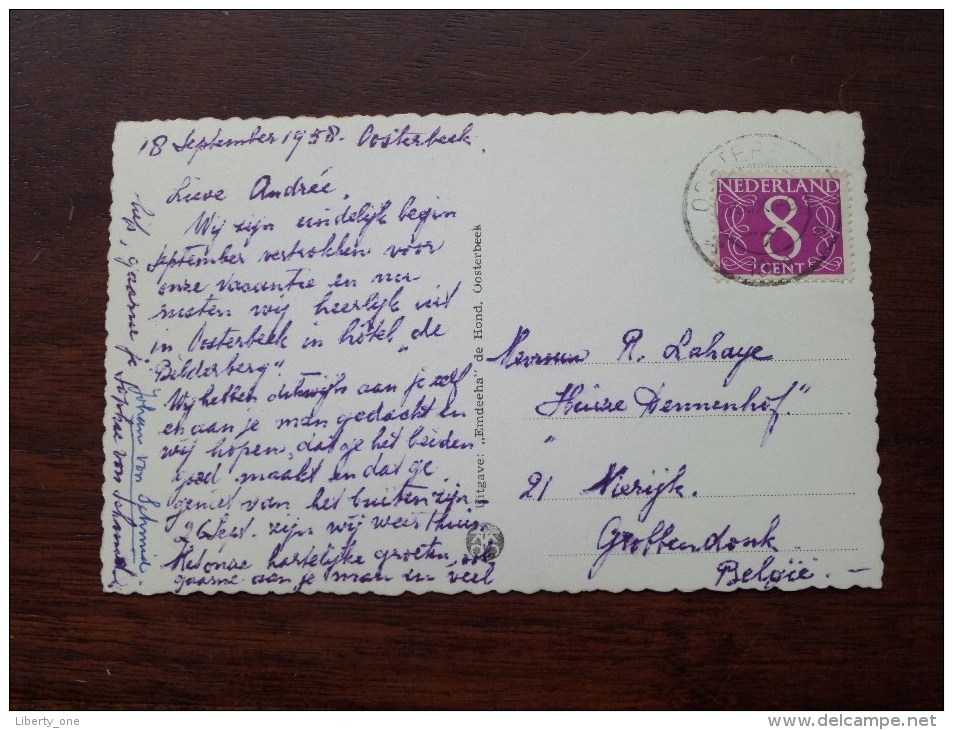 18 September 1958. Oosterbeek.
Lieve Andrée,
Wij zijn eindelijk begin
September vertrokken voor
onze vacantie en nu
rusten wij heerlijk uit
in Oosterbeek in hôtel „de
Bilderberg".
Wij hebben dikwijls aan je zelf
en aan je man gedacht en
wij hopen, dat je het beiden
goed maakt en dat je
geniet van het buiten zijn
26 Sept. zijn wij weer thuis.
Met onze hartelijke groeten, ook
gaarne aan je man en veel
liefs, gaarne je Sophie von Schmid
Johan von Schmid.
Uitgave: „Emdeeha" de Hond, Oosterbeek
OOSTERBEEK
NEDERLAND
8
CENT
Mevrouw R. Lahaye
„Huize Dennenhof."
21 Nierijk.
Grobbendonk.
België. —
Liberty_one
www.delcampe.net